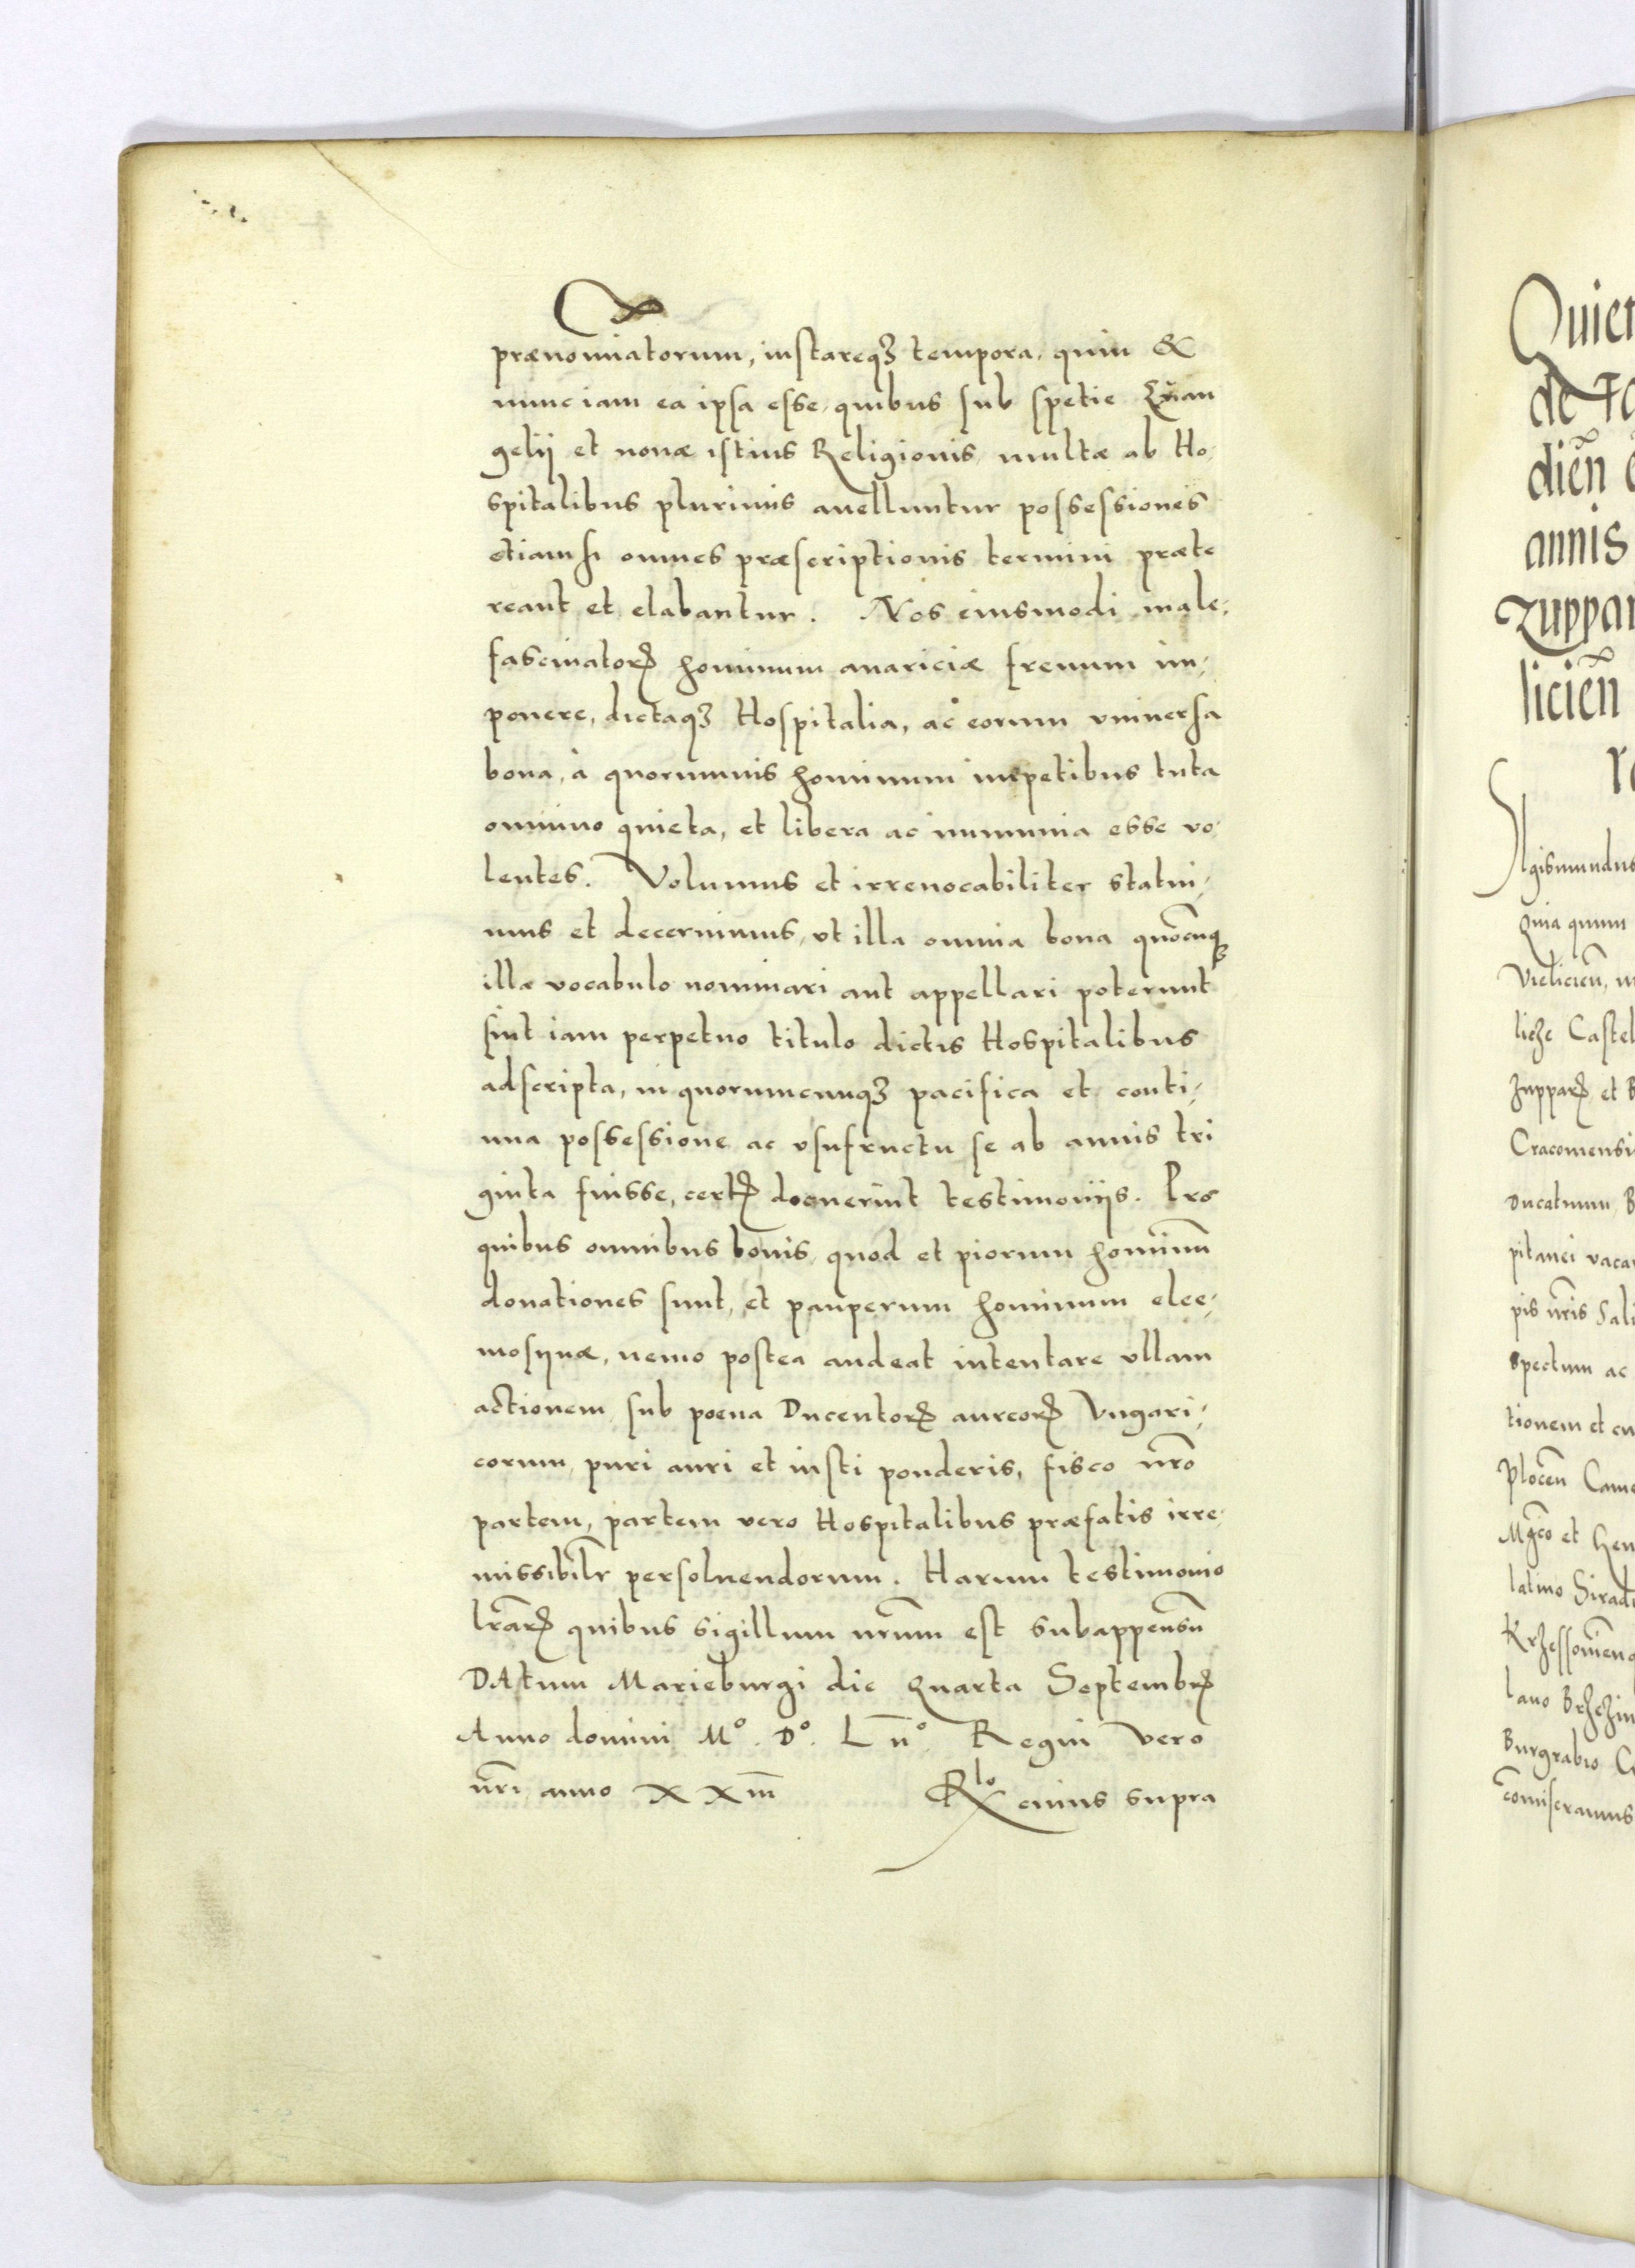 prænominatorum, instareqꝫ tempora, quin &
nunc iam ea ipsa esse, quibus sub spetie Euan
gelij et nouæ istius Religionis, multæ ab Ho,
spitalibus plurimis auelluntur possessiones
etiam si omnes præscriptionis termini præte
reant et elabantur. Nos eiusmodi male,
fascinatorꝝ hominum auariciæ frenum im,
ponere, dictaqꝫ Hospitalia, ac eorum vniuersa
bona, à quorumuis hominum impetibus tuta
omnino quieta, et libera ac immunia esse vo,
lentes. Volumus et irreuocabiliter statui,
mus et decernimus, vt illa omnia bona quocũqꝫ
illa vocabulo nominari aut appellari poterunt
sint iam perpetuo titulo dictis Hospitalibus
adscripta, in quorumcunqꝫ pacifica et conti,
nua possessione ac vsufructu se ab annis tri
ginta fuisse, certꝭ docuerint testimonijs. Pro
quibus omnibus bonis, quod et piorum hominũ
donationes sunt, et pauperum hominum elee,
mosijnæ, nemo postea audeat intentare vllam
actionem, sub poena Ducentorꝝ aureorꝝ Vngari,
corum, puri auri et iusti ponderis, fisco nr̃o
partem, partem vero Hospitalibus præfatis irre,
missibilr̃ persoluendorum. Harum testimonio
lr̃arꝝ quibus sigillum nr̃um est subappensũ
DAtum Marieburgi die quarta Septembrꝭ
Anno domini Mº. Dº. L ñº. Regni vero
nr̃i anno X X m̃ Rlo cuius supra
Quiet
de
dieñ
annis
zuppar
licieñ
Sigismundus
Quia quum
Vielicieñ, 
liche Castel
Zupparꝝ et B
Cracouiensi
Ducatuum, B
pitanei vaca
pis nr̃is Sali
spectum ac
tionem et cu
Ploceñ Came
Mgc̃o et Gen
latino Sirad
lano Brzezin
Burgrabio C
com̃iseramus